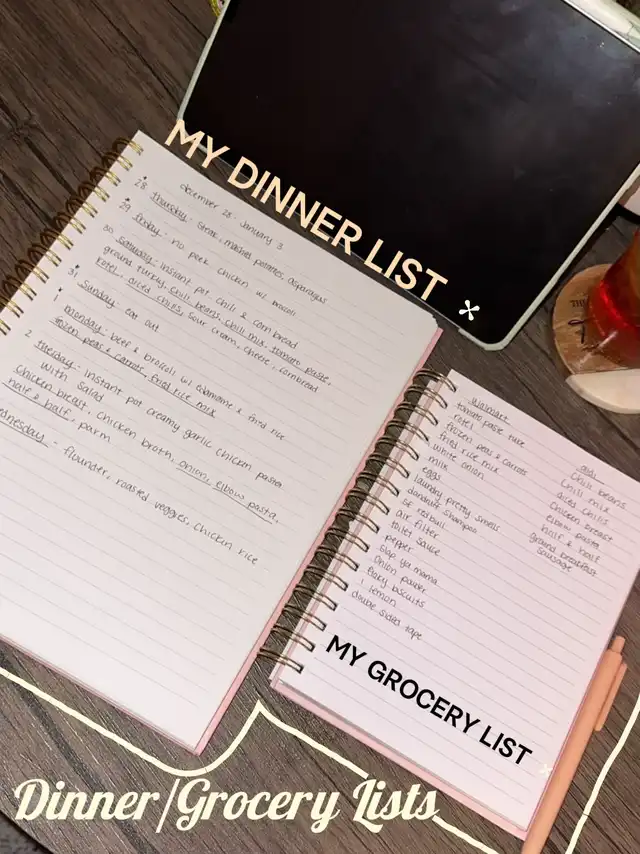 MY DINNER LIST
december 28 - January 3
28 thursday - steak, mashed potatoes, asparagus
29 friday - no peek chicken w/ broccoli
30 Saturday - instant pot chili & cornbread
ground turkey, chili beans, chili mix, tomato paste,
rotel, diced chilis, sour cream, cheese, cornbread
31 Sunday - eat out
1 monday - beef & broccoli w/ edamame & fried rice
frozen peas & carrots, fried rice mix
2 tuesday - instant pot creamy garlic chicken pasta
with salad
chicken breast, chicken broth, onion, elbow pasta,
half & half, parm
wednesday - flounder, roasted veggies, chicken rice
walmart
tomato paste tube
rotel
frozen peas & carrots
fried rice mix
white onion
milk
eggs
laundry pretty smells
dandruff shampoo
redbull
air filter
toilet sauce
pepper
slap ya mama
onion powder
flaky biscuits
1 lemon
double sided tape
aldi
Chili beans
Chili mix
diced chilis
chicken breast
elbow pasta
half & half
ground breakfast
sausage
MY GROCERY LIST
Dinner/Grocery Lists